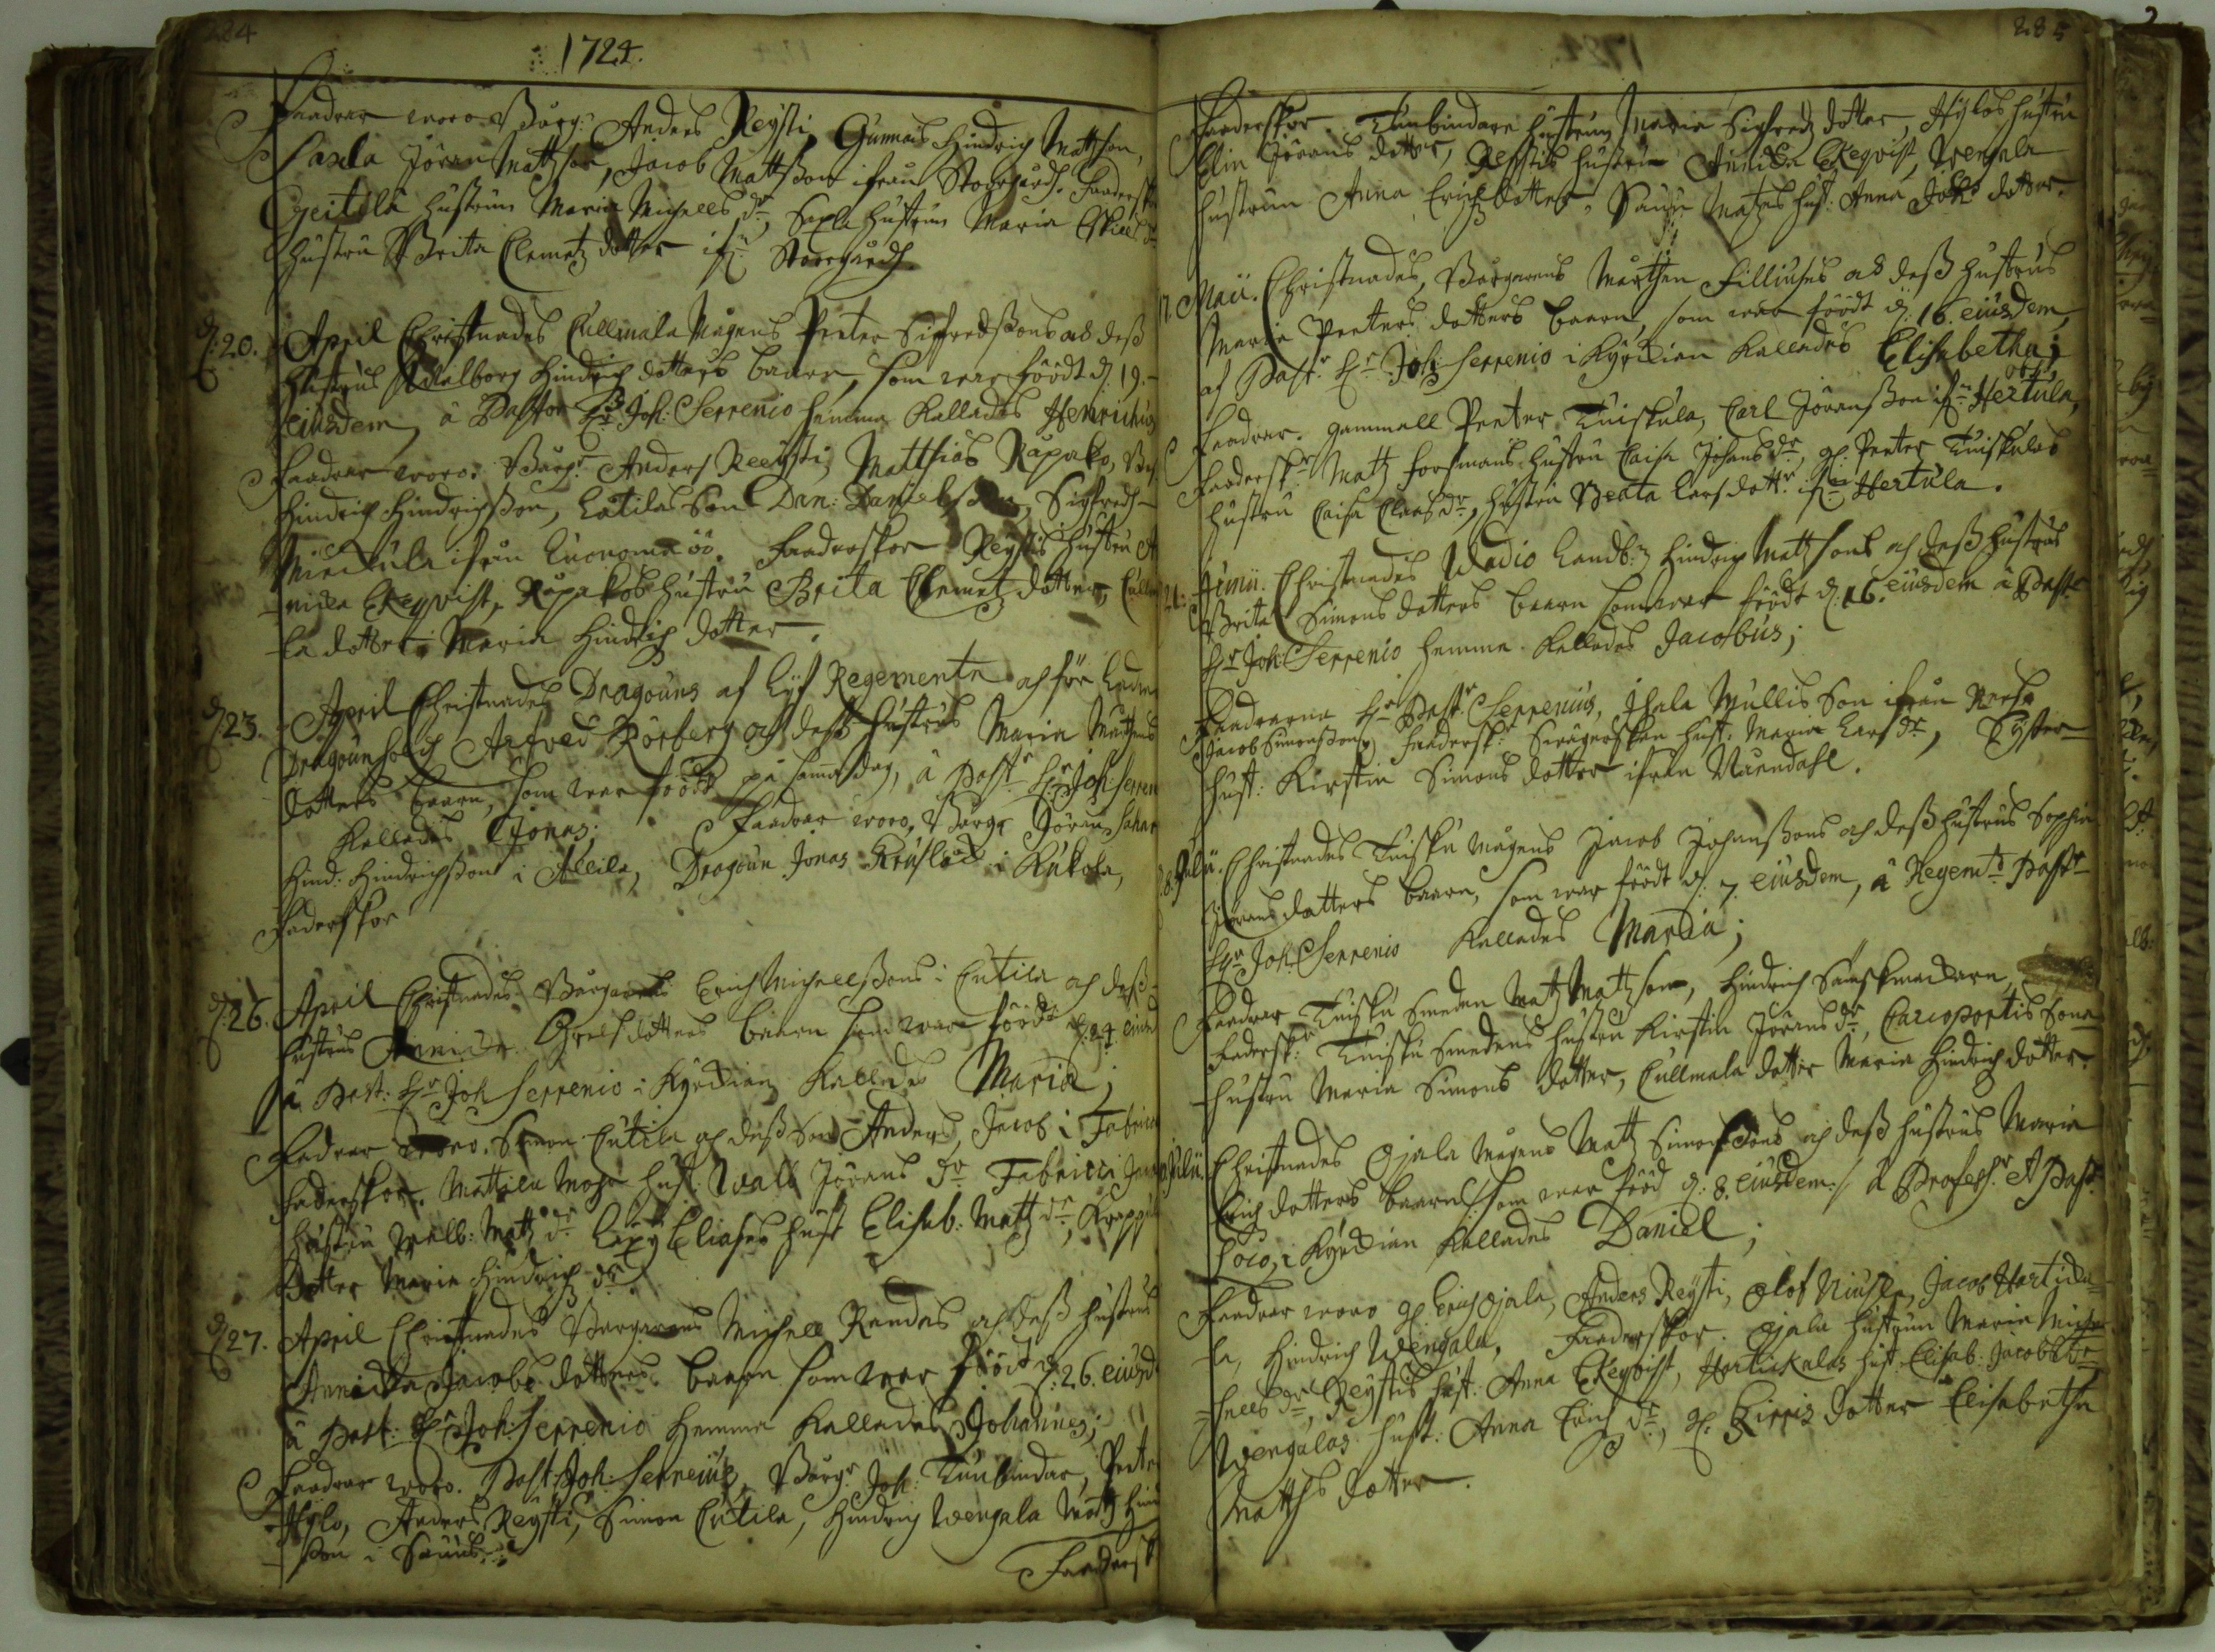 224
1724.
Faadrar woro Bårg: Anders Reÿsti, Gunnars Hindrich Mattson,
Saxla Jöran Mattson, Jacob Mattsson ifrån Storgård. Faadersk
Geitila hustrun Maria Michells dr, Saxla hustrun Maria Eskills dr
hustru Brita Clemetz dotter ifr. Storgård.
d. 20. April Christnades Cullmala Mågens Peeter Sigfredssons och dess
hustrus Walborg Hindrich dotters baarn, som war föödt d. 19.
eiusdem, à Pastor Hr Joh: Serrenio hemma kallades Henrichus
Faadrar woro. Bårgr Anders Reeÿsti, Matthias Räpako,
Hindrich Hindrichsson, Latilas Son Dan: Danielsson, Sigfred
Mickula ifrån Kuonoma öö. Faaderskor Reÿstis hustru A
nicka Ekeqvist, Räpakos hustru Brita Clemetz dotter, Cullm
la dotter Maria Hindrich dotter.
d. 23. April Christnades Dragouns af Lÿf Regemente
Dragoun Arfved Körberg och dess hustrus Maria Mattzens
dotters baarn, som war föödt på samma dag, à Pastr Hr Joh: Serren
kallades Jonas; Faadrar woro, Bårgr Jöran
Hind: Hindrichsson i Alleila, Dragoun Jonas Kruslåd i Kukola,
Faderskor
d. 26. April Christnades Bårgarens Erich Michellssons i Eutila och dess
hustrus Annicka Grels dotters baarn som war föödt d. 24 eiusd
à Past: Hr Joh Serrenio i Kÿrckian kallades Maria;
Fadrar woro. Simon Eutila och dess Son Anders, Jacob i Fabricii
Faderskor. Mattila Moje hust: Walb Jörans dr Fabricii
hustru Walb: Matz dr Eliases hust Elisab: Matz dr,
Dotter Maria Hindrich dr.
d. 27. April Christnades Bårgarens Michell Randas och dess hustrus
Annicka Jacobs dotters baarn som war föödt d. 26. eiusd
à Past: Hr Joh: Serrenio hemma kallades Johannes;
Faadrar woro. Past: Joh: Serreius, Bårgr Joh: Tunbindar, Peeter
Hÿlo, Anders Reÿsti, Simon Eutila, Hindrich Wengala Matz Hin
son i Sauus.
Faadersk
285
Faaderskor. Tunbindare hustrun Maria Sigfredz dotter, Hÿlos hustru
Elin Jörans dotter, Reÿstis hustru Annicka Ekeqvist, Wengala
hustrun Anna Erichz dotter, Sauu Matzes hust: Anna Joh: dotter.
17. Maii. Christnades, Bårgarens Mårthen Filliuses och dess hustrus
Maria Peeters dotters baarn, som war föödt d. 16. eiusdem,
af Pastr Hr Joh: Serrenio i Kÿrckian kallades Elisabetha; obiit
Faadrar. gammall Peeter Tuiskula, Carl Jöransson ifrn Hertula,
Faadersk: Matz Forsmans hustru Caisa Johans dr, gl. Peeter Tuiskulas
hustru Caisa Clas dr, hustru Beata Lars dottr ifrn Hertula.
21. Junii. Christnades Wadio Landb: Hindrich Mattsons och dess hustrus
Brita Simons dotters baarn som war föödt d. 16. eiusdem à Pastr
Hr Joh: Serrenio hemma kallades Jacobus;
Faadrarna Hr Pastr Serrenius, Ihala Mullis Son ifrån
Jacob Simonsson, Faadersk: hust: Maria Lars dr,
hust: Kirstin Simons dotter ifrån Naendahl.
8. Julii. Christnades Tuisku Mågens Jacob Johanssons och dess hustrus Sophia
Jörans dotters baarn, som war föödt d. 7 eiusdem, à Regemts Pastr
Hr Joh: Serrenio kallades Maria;
Faadrar Tuisku Smeden Matz Mattson, Hindrich Sämskmackare
Fadersk: Tuisku Smedens hustru Kirstin Jörans dr, Carioportis Sons
hustru Maria Simons dotter, Cullmala dotter Maria Hindrich dotter.
Julii. Christnades Ojala Mågens Matz Simonssons och dess hustrus Maria
Erich dotters baarn /som war föd d. 8. eiusdem:/ à Professr Past
loco, i Kÿrckian kallades Daniel;
Faadrar woro gl. Erich Ojala, Anders Reÿsti, Olof Niuhla, Jacob Hartika
la, Hindrich Wengala. Faaderskor. Ojala hustrun Maria Mich
hells dr, Reÿstis hust: Anna Ekeqvist, Hartickalas hust: Elisab: Jacobs dr
Wengalas hust: Anna Erich dr, gl. Kirris dotter Elisabetha
Matths dotter.